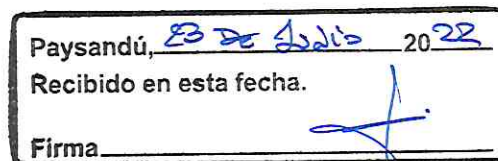 Paysandú, 23 DE Julio 2022
Recibido en esta fecha.
Firma